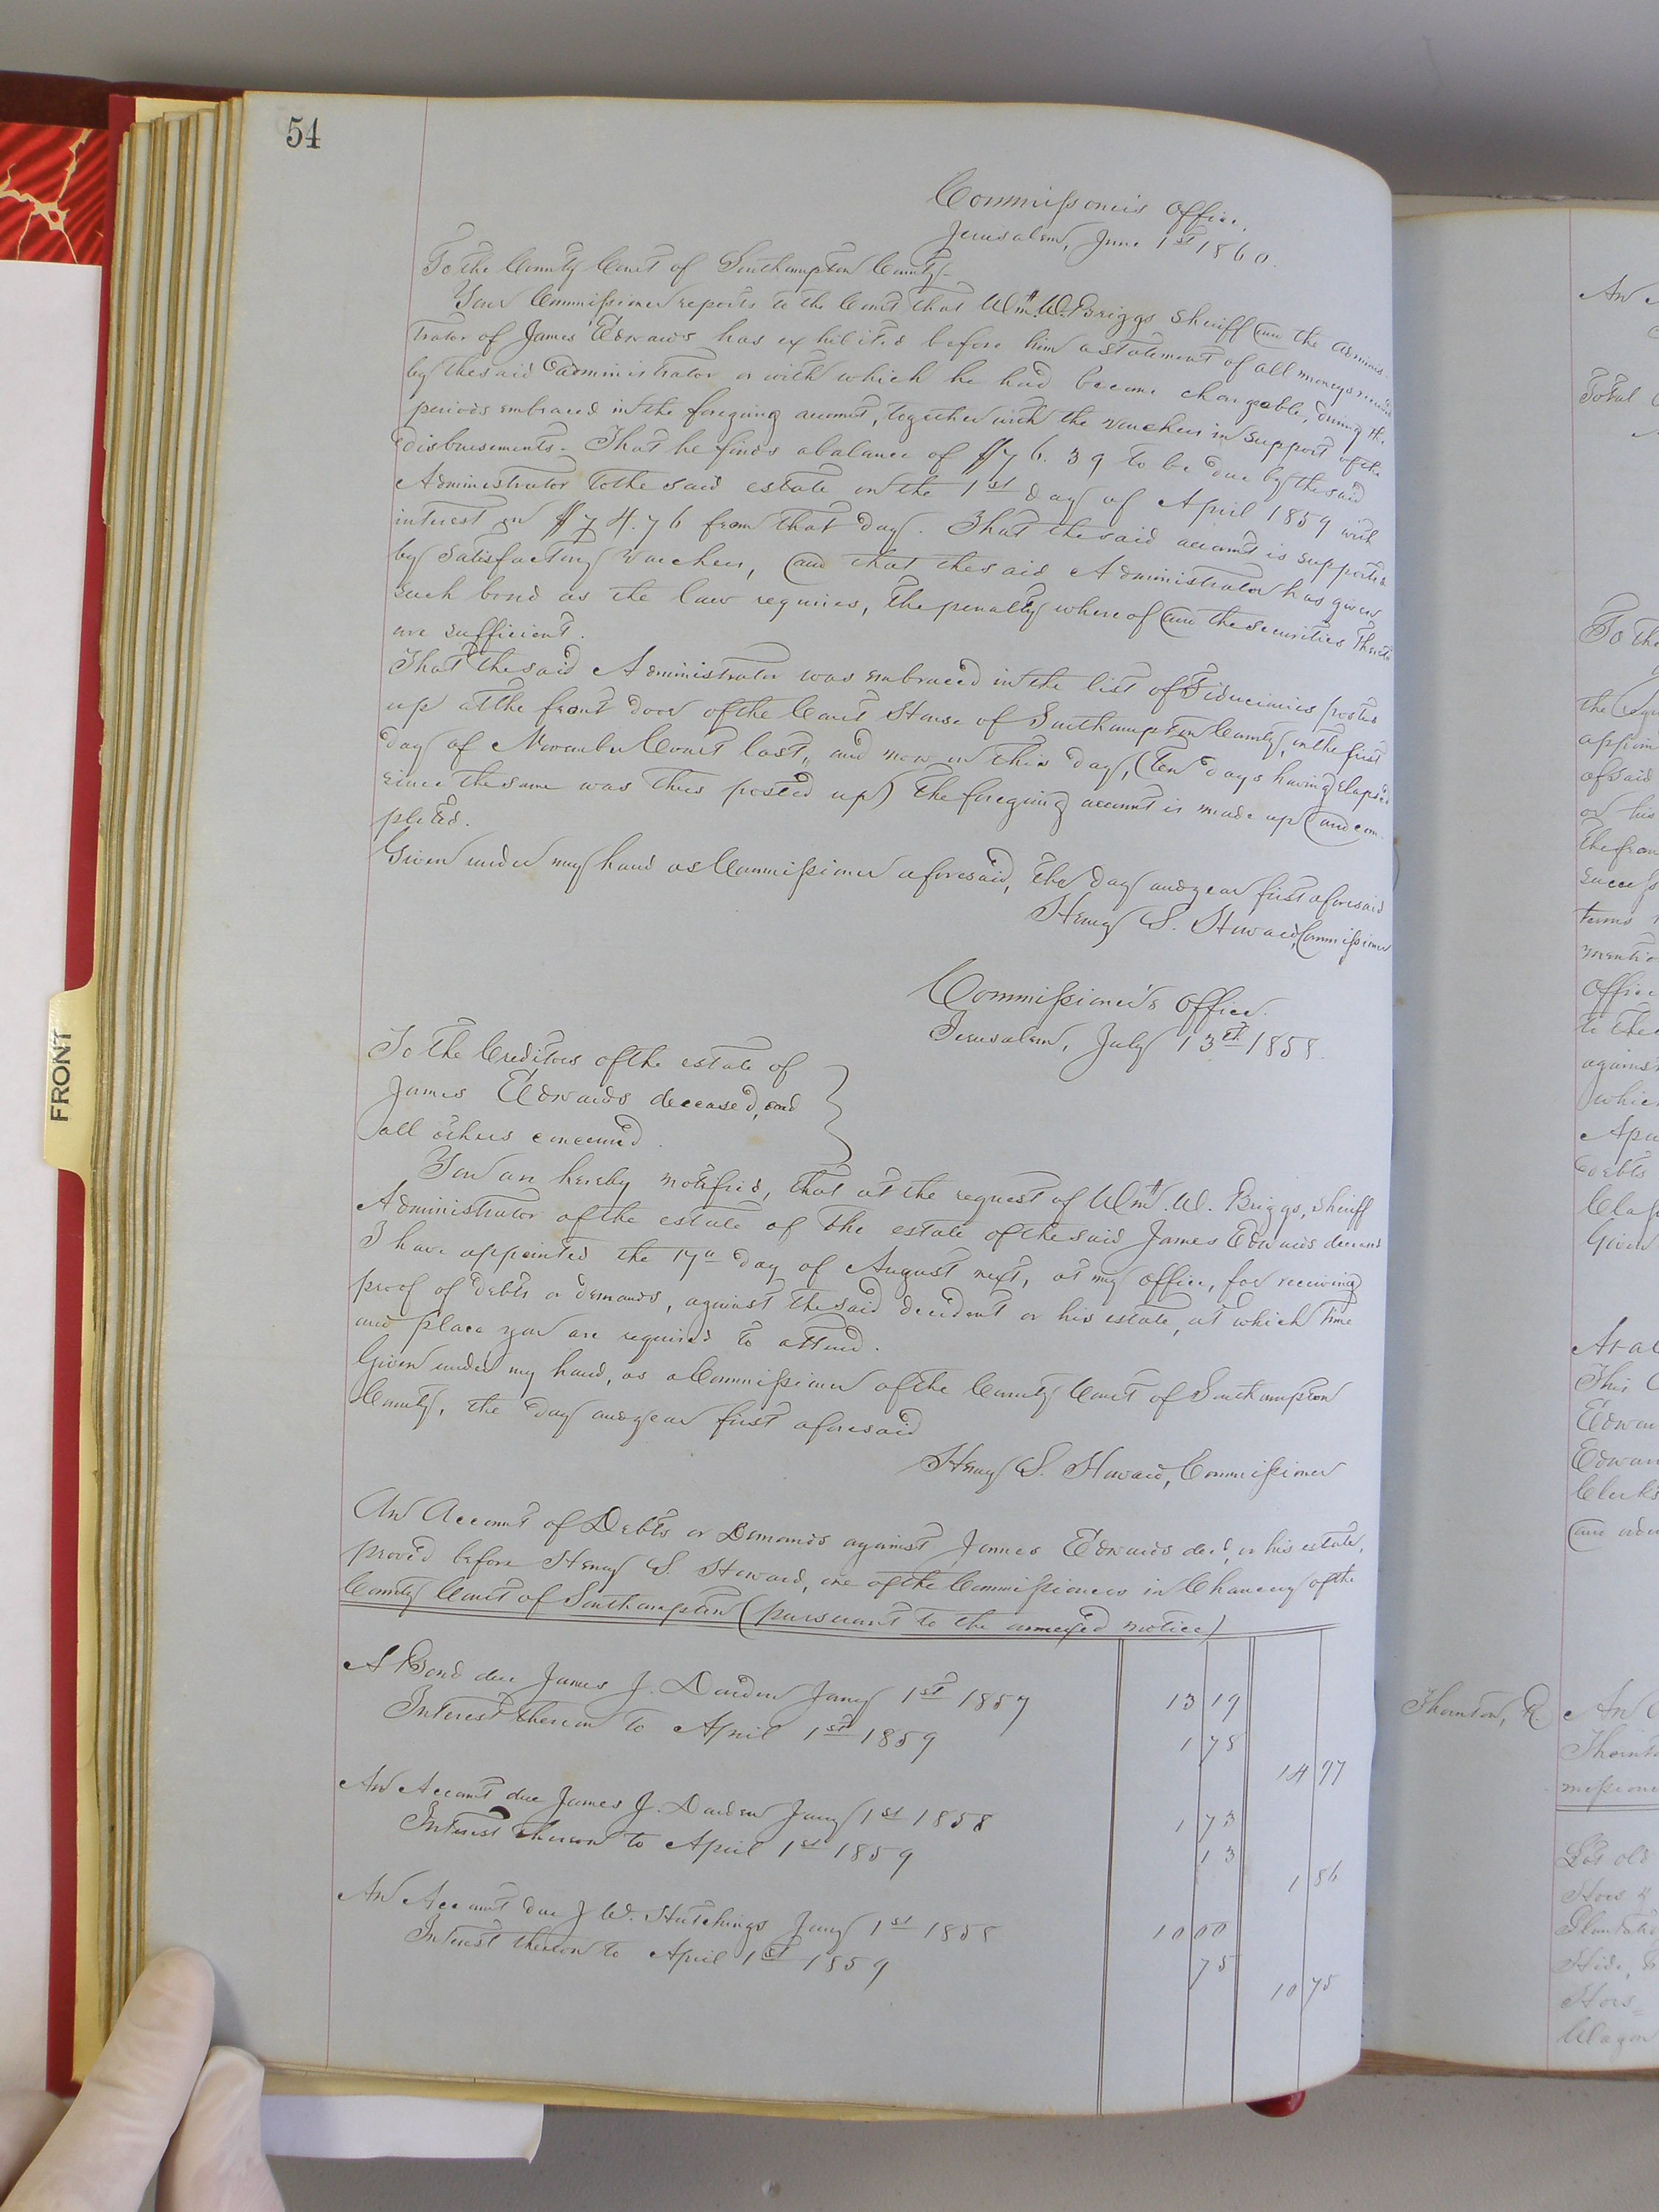 54
Commissioner's Office,
Jerusalem, June 1st 1860.
To the County Court of Southampton County—
Your Commissioner reports to the Court that Wm. W. Briggs Sheriff and the adminis-
trator of James Edwards has exhibited before him a statement of all moneys received
by the said administrator or with which he had become chargeable, during the
periods embraced in the foregoing account, together with the vouchers in support of the
disbursements. That he finds a balance of $76.39 to be due by the said
Administrator to the said estate on the 1st day of April 1859 with
interest on $74.76 from that day. That the said account is supported
by satisfactory vouchers, and that the said Administrator has given
such bond as the law requires, the penalty whereof and the securities thereto
are sufficient.
That the said Administrator was embraced in the list of Fiduciaries posted
up at the front door of the Court House of Southampton County, on the first
day of November Court last, and now on this day, (ten days having elapsed
since the same was thus posted up) the foregoing account is made up and com-
pleted.
Given under my hand as Commissioner aforesaid, the day and year first aforesaid
Henry S. Howard, Commissioner
Commissioner's Office.
Jerusalem, July 13th 1858.
To the Creditors of the estate of
James Edwards deceased, and
all others concerned.
You are hereby notified, that at the request of Wm. W. Briggs, Sheriff
Administrator of the estate of the estate of the said James Edwards deceased
I have appointed the 17th day of August next, at my office, for receiving
proof of debts or demands, against the said decedent or his estate, at which time
and place you are required to attend.
Given under my hand, as a Commissioner of the County Court of Southampton
County, the day and year first aforesaid
Henry S. Howard, Commissioner
An Account of Debts or Demands against James Edwards decd, or his estate,
proved before Henry S. Howard, one of the Commissioners in Chancery of the
County Court of Southampton (pursuant to the annexed notice)
A Bond due James J. Darden Jany 1st 1857 13 19
Interest thereon to April 1st 1859 1 78
14 97
An Account due James J. Darden Jany 1st 1858 1 73
Interest thereon to April 1st 1859 13
1 86
An Account due J W. Hutchings Jany 1st 1858 10 00
Interest thereon to April 1st 1859 75
10 75
FRONT
An
Total
To the
the
of said
or his
the fron
success
terms
mentio
Office
to the
against
which
Apri
debts
Clas
Given
This
Edwar
Edwar
Clerks
Thornton, R.
An
Thornt
missione
Lot old
Hoes &
Plantatio
Hide,
Hoes
Wagon